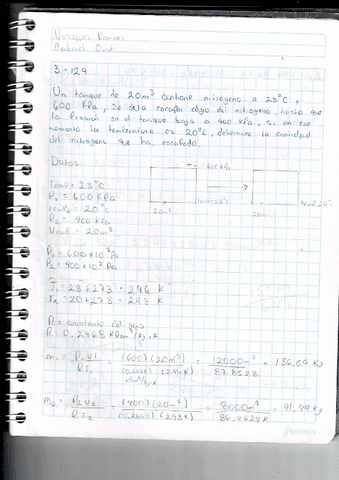 3-129
Un tanque de 20m³ contiene nitrogeno a 23°C,
600 KPa, Se deja escapar algo del nitrogeno, hasta que
la Presion en el tanque baja a 400 KPa, si en ese
momento la temperatura es 20°C, determine la cantidad
del nitrogeno que ha escapado.
Datos
Temp= 23°C
P₁ = 600 KPa
temp₂ = 20°C
P₂ = 400 KPa
= 20m³
20m³
P₁ = 600 x10³ Pa
P₂ = 400 x10³ Pa
T₁ = 23+273 = 296 K
T₂ = 20+273 = 293 K
R= constante del gas
R= 0.2968 KPam³/Kg·K
m₁ = P₁V₁/RT₁ = (600)(20m³)/(0.2968)(296K) = 12000m³/87.8528 = 136.59 Kg
m₂ = P₂V₂/RT₂ = (400)(20m³)/(0.2968)(293K) = 8000m³/86.9624 = 91.99 Kg